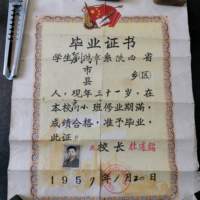 毕业证书
学生刘鸿年系陕西省
市
县
乡(区)
人,现年三十一岁,在
本校高小班修业期满,
成绩合格,准予毕业,
此证
校长
1957年1月20日